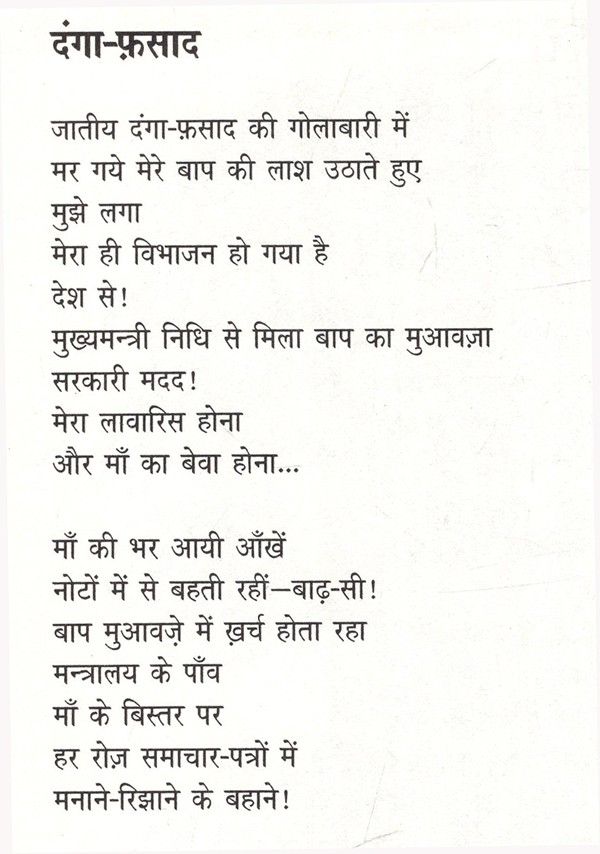 दंगा-फ़साद
जातीय दंगा-फ़साद की गोलाबारी में
मर गये मेरे बाप की लाश उठाते हुए
मुझे लगा
मेरा ही विभाजन हो गया है
देश से!
मुख्यमन्त्री निधि से मिला बाप का मुआवज़ा
सरकारी मदद!
मेरा लावारिस होना
और माँ का बेवा होना...
माँ की भर आयी आँखें
नोटों में से बहती रहीं—बाढ़-सी!
बाप मुआवज़े में ख़र्च होता रहा
मन्त्रालय के पाँव
माँ के बिस्तर पर
हर रोज़ समाचार-पत्रों में
मनाने-रिझाने के बहाने!